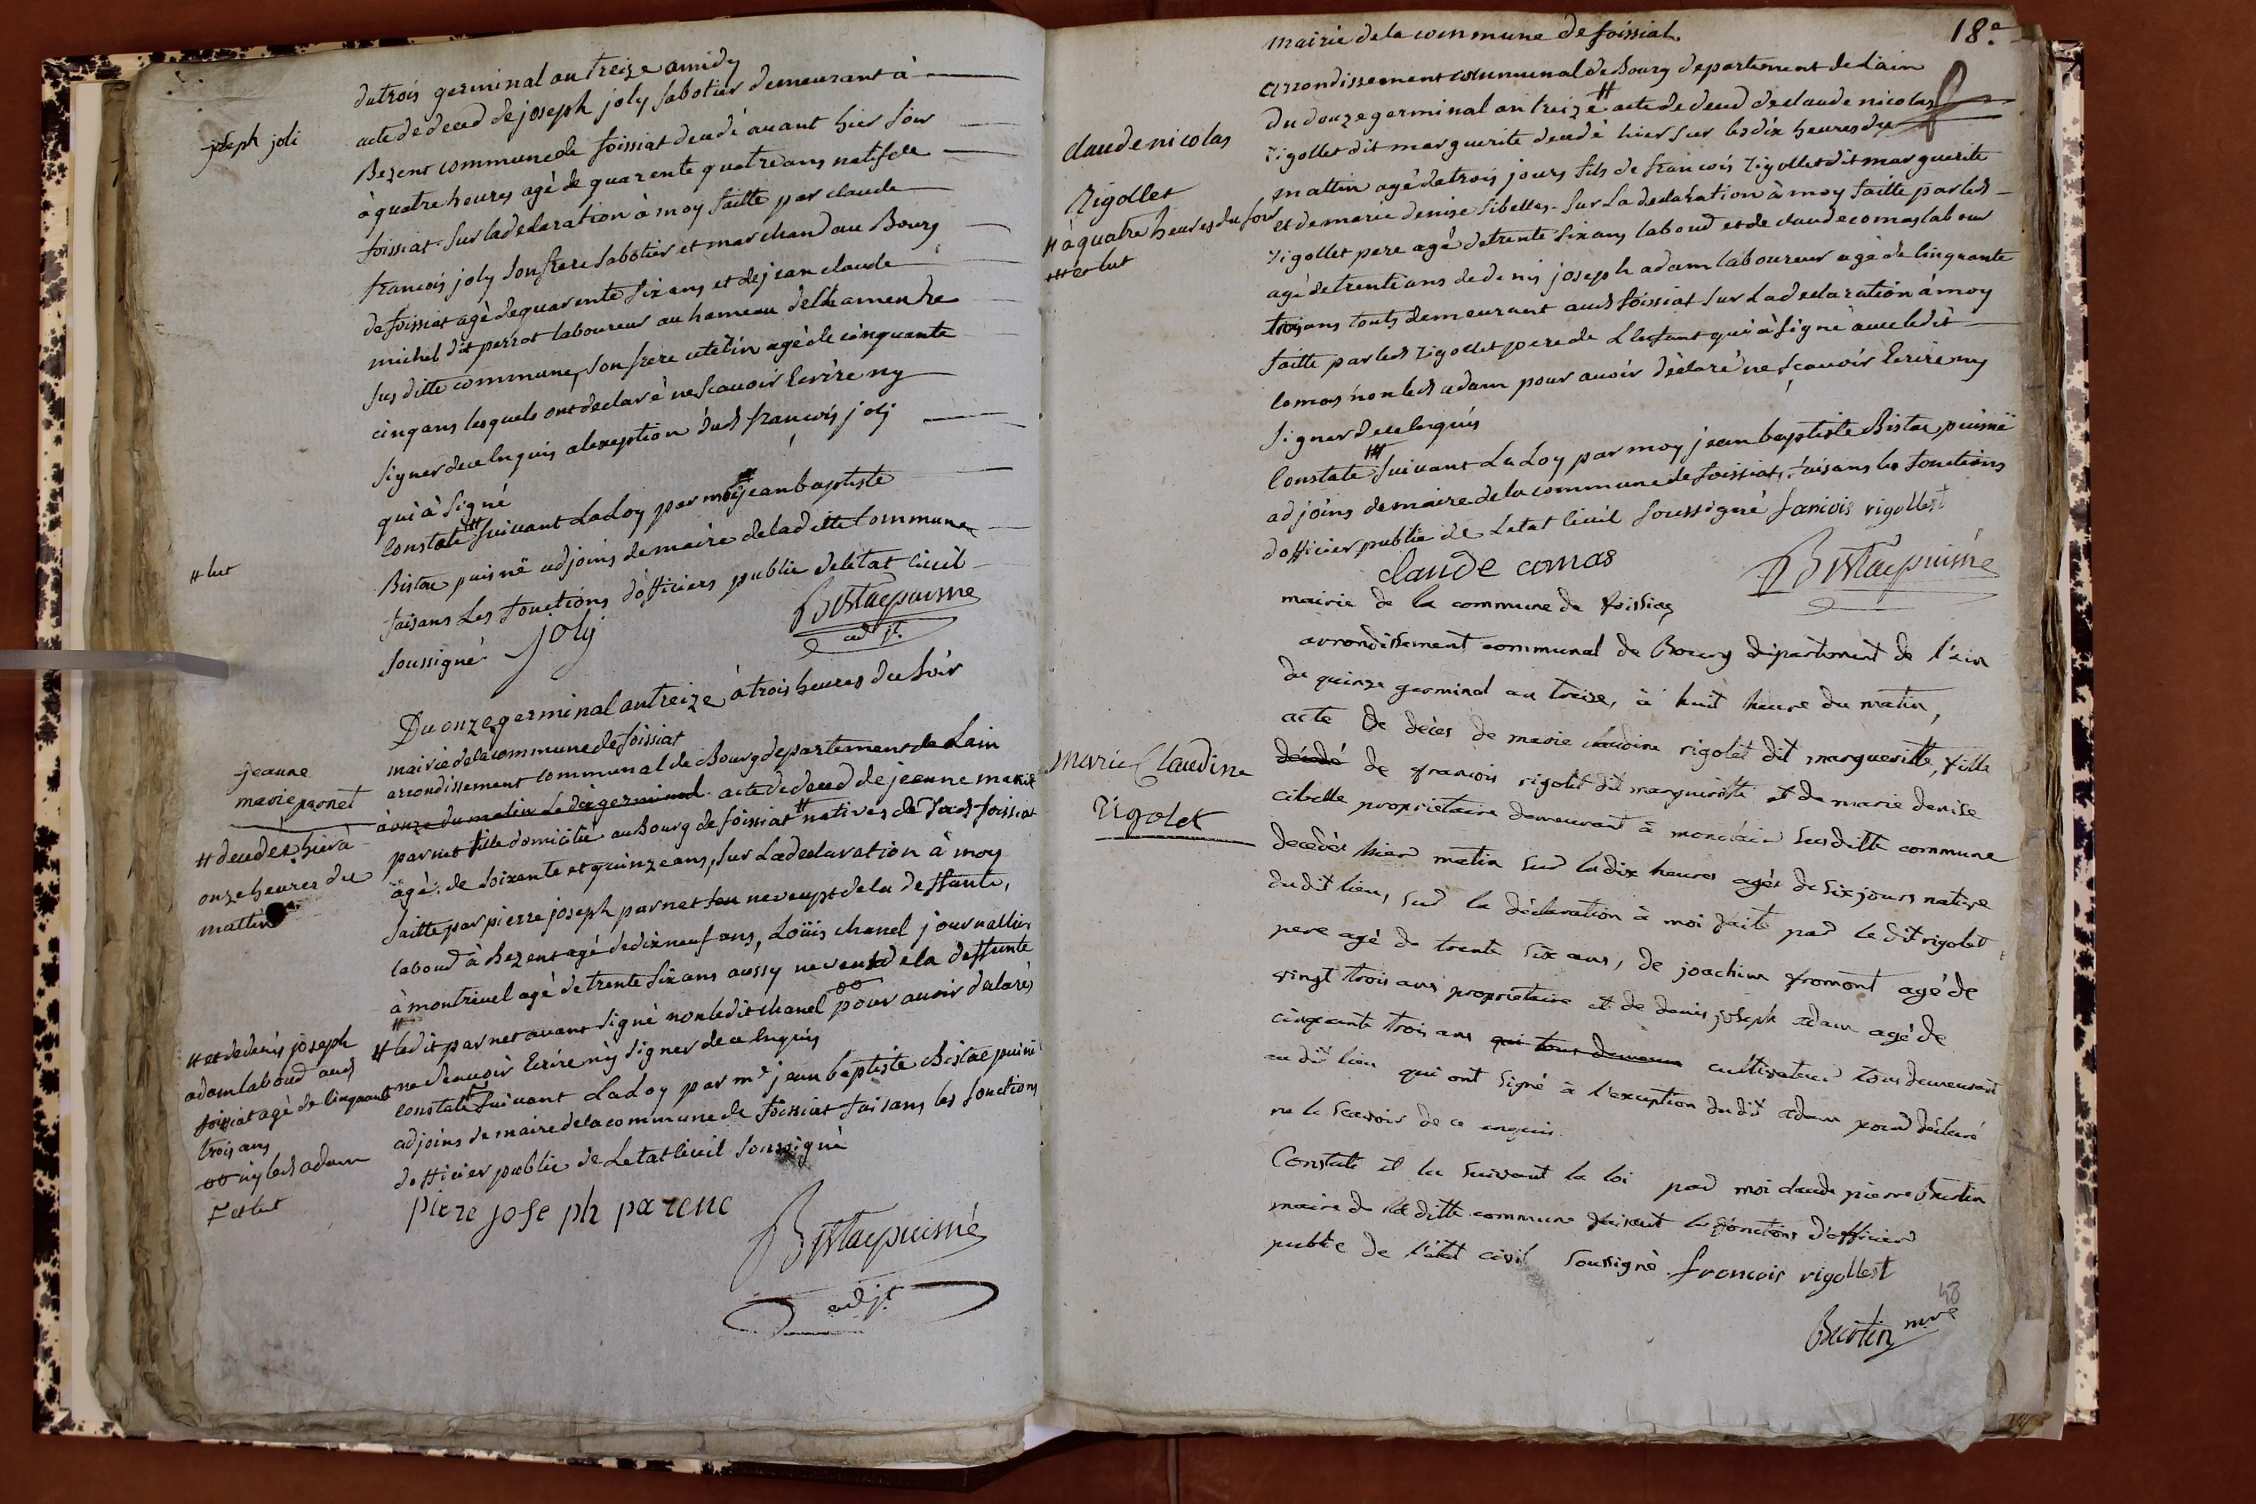 du trois germinal an treize a midy
joseph joli
acte de deced de joseph joly sabotier demeurant à
Bezent commune de foissiat decedé avant hier soir
à quatre heures agé de quarente quatre ans natif de
foissiat. sur la declaration à moy faitte par claude
francois joly son frere sabotier et marchand au Bourg
de foissiat agé de quarente six ans et de jean claude
michel dit perrot laboureur au hameau de
sus ditte commune, son frere uterin agé de cinquante
cinq ans lesquels ont declaré ne scavoir Ecrire ny
signer de ce Enquis a lexeption dud francois joly
qui à signé
Constaté # suivant La Loy par moy jean baptiste
# lut
Bistac puisné adjoins de maire de la ditte Commune
faisans Les fonctions dofficiers public de letat civil
soussigné joly Bistac puisné
adjt.
Du onze germinal an treize à trois heures du soir
mairie de la commune de foissiat
jeanne
marie parnet
arrondissement communal de Bourg departement de Lain
à onze du matin Le dix germinal acte de deced de jeanne marie
parnet fille domicilié au Bourg de foissiat # natives de foissiat
# decedé hier à
onze heures du
mattin
agé de soixente et quinze ans, sur La declaration à moy
faitte par pierre joseph parnet neveu de la deffunte,
laboud à Bezent agé de dix neuf ans, Loüis chanel journallier
à montrevel agé de trente six ans aussy neveu de la deffunte
# et de denis joseph
adam laboud aud
foissiat agé de cinquante
trois ans
oo ny led adam
F et lut
# ledit parnet avant signé non ledit chanel oo pour avoir declarés
ne scavoir Ecrire ny signer de ce Enquis
Constaté F suivant La Loy par me jean baptiste Bistac puiné
adjoins de maire de la commune de foissiat faisans les fonctions
dofficier public de Letat Civil soussigné
piere joseph parene
Bistac puisné
adjt.
18.e
mairie de la commune de foissiat
arrondissement communal de Bourg departement de Lain
claude nicolas
Rigollet
# à quatre heures du soir
### et lut
du douze germinal an treize # acte de deced de claude nicolas
rigollet dit marguerite decedé hier sur les dix heures du
mattin agé de trois jours fils de francois rigollet dit marguerite
et de marie denise sibelles. sur La declaration à moy faitte par led
rigollet pere agé de trente six ans laboud et de claude comas labour
agé de trente ans de denis joseph adam laboureur agé de Cinquante
trois ans touts demeurant aud foissiat sur La declaration à moy
faitte par led rigollet pere de L'enfant qui à signé avec ledit
Comas non led adam pour avoir déclaré ne scavoir Ecrire ny
signer de ce Enquis
Constaté ### suivant La Loy par moy jean baptiste Bistac puisné
adjoins de maire de la commune de foissiat, faisans les fonctions
dofficier public de Letat Civil soussigné fancois rigollest
claude comas Bistac puiné
mairie de la commune de foissiat
arrondissement communal de Bourg département de l'ain
du quinze germinal an treize, à huit heure du matin,
Marie Claudine
Rigolet
acte de décès de marie claudine rigolet dit margueritte, fille
décédé de francois rigolet dit marguerite et de marie denise
cibelle proprietaire demeurant à susditte commune
decédés hier matin sur les dix heures agés de six jours native
dudit lieu, sur la déclaration à moi faite par le dit rigolet
pere agé de trente six ans, de joachim fromont agé de
vingt trois ans proprietaire et de denis joseph adam agé de
cinquante trois ans qui tous demeure cultivateur tous demeurant
au dit lieu qui ont signé à l'exception du dit adam pour déclaré
ne le scavoir de ce enquis.
Constaté et lu suivant la loi par moi claude pierre Burtin
maire de la ditte commune faisant les fonctions d'officier
public de l'état civil soussigné. francois rigollest
Burtin mre
48